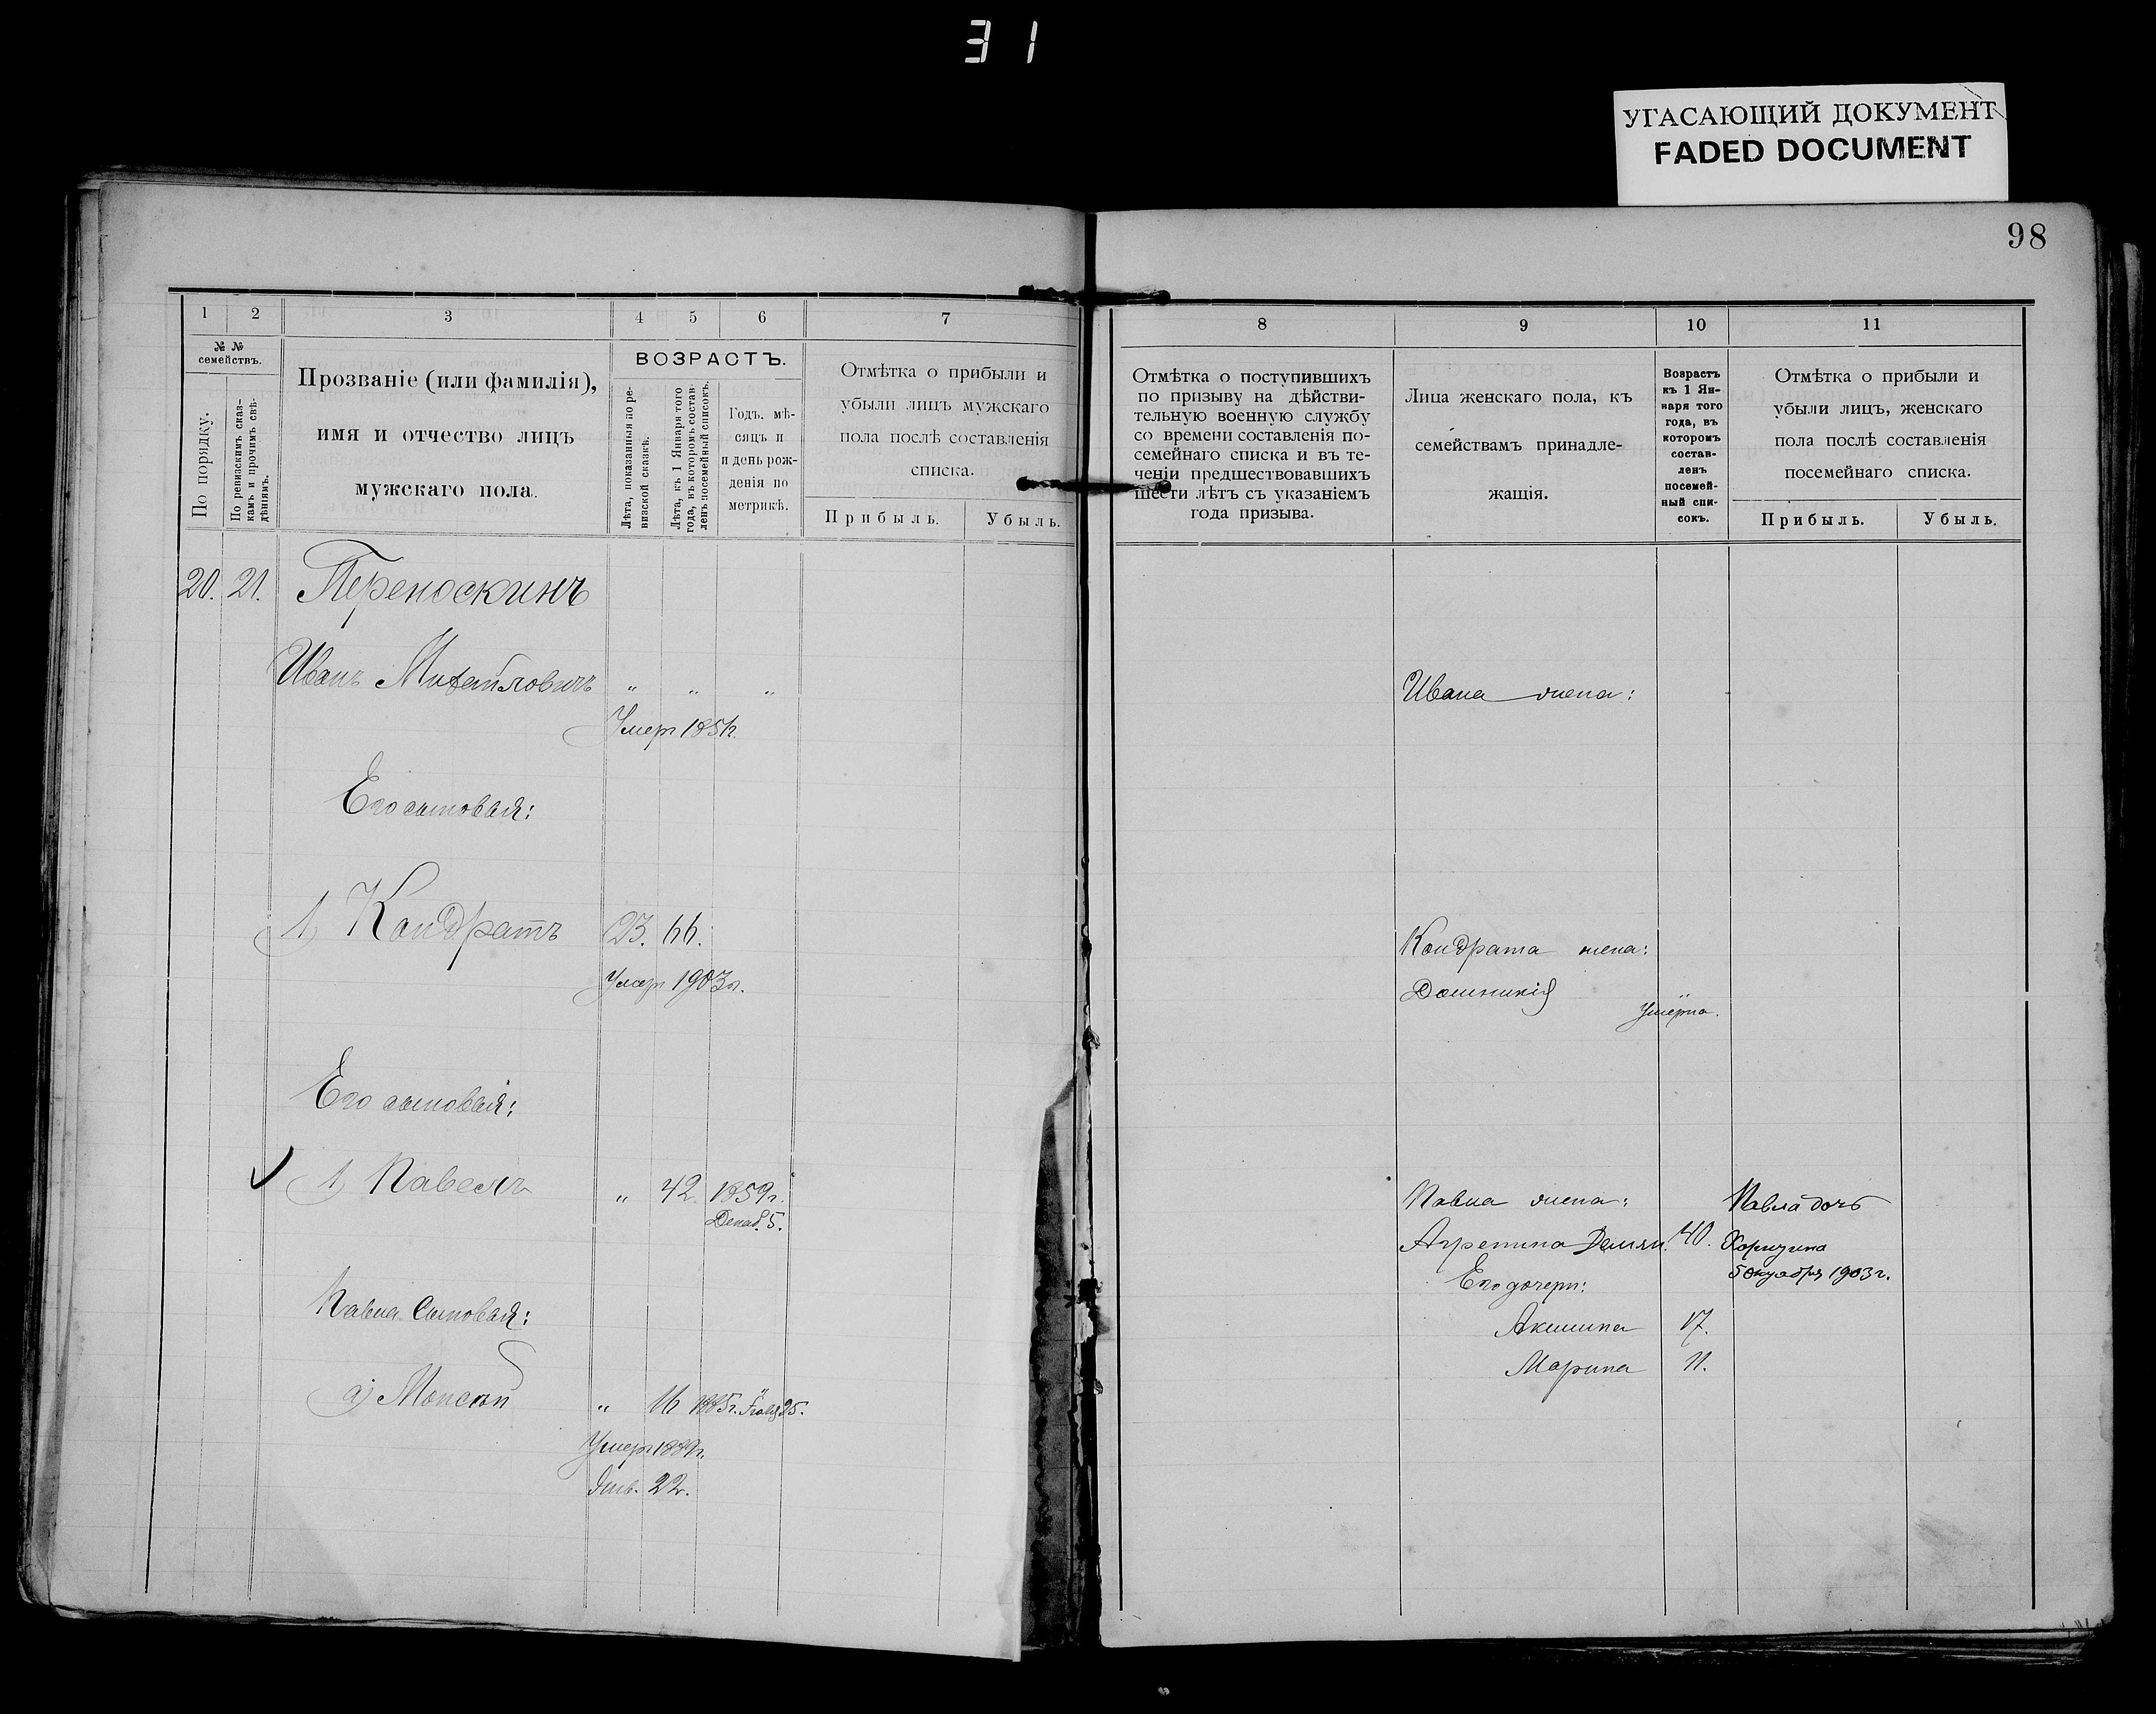 31
УГАСАЮЩИЙ ДОКУМЕНТ
FADED DOCUMENT
98
1 2 3 4 5 6 7
№ №
семействъ.
По порядку.
По ревизскимъ сказ-
камъ и прочимъ свѣ-
дѣніямъ.
Прозваніе (или фамилія),
имя и отчество лицъ
мужскаго пола.
ВОЗРАСТЪ.
Лѣта, показанныя по ре-
визской сказкѣ.
Лѣта, къ 1 Января того
года, въ которомъ состав-
ленъ посемейный списокъ.
Годъ, мѣ-
сяцъ и
и день рож-
денія по
метрикѣ.
Отмѣтка о прибыли и
убыли лицъ мужскаго
пола послѣ составленія
списка.
Прибыль. Убыль.
20. 21. Переноскинъ
Иванъ Михайловичъ " " "
Умеръ 1851г.
Его сыновья:
1) Кондратъ 23. 66.
Умеръ 1903г.
Его сыновья:
1) Павелъ " 42 1859г.
Декаб. 5.
Павла сыновья:
а) Моисей " 16 1885г. 25.
Умеръ 1889г.
Янв. 22.
8 9 10 11
Отмѣтка о поступившихъ
по призыву на дѣйстви-
тельную военную службу
со времени составленія по-
семейнаго списка и въ те-
ченіи предшествовавшихъ
шести лѣтъ съ указаніемъ
года призыва.
Лица женскаго пола, къ
семействамъ принадле-
жащія.
Возрастъ
къ 1 Ян-
варя того
года, въ
которомъ
состав-
ленъ
посемей-
ный спи-
сокъ.
Отмѣтка о прибыли и
убыли лицъ, женскаго
пола послѣ составленія
посемейнаго списка.
Прибыль. Убыль.
Ивана жена:
Кондрата жена:
Домникія
Умерла.
Павла жена: Павла дочь
Агрепина Демян. 40.
5 октября 1903г.
Его дочери:
Акилина 17.
Марина 11.